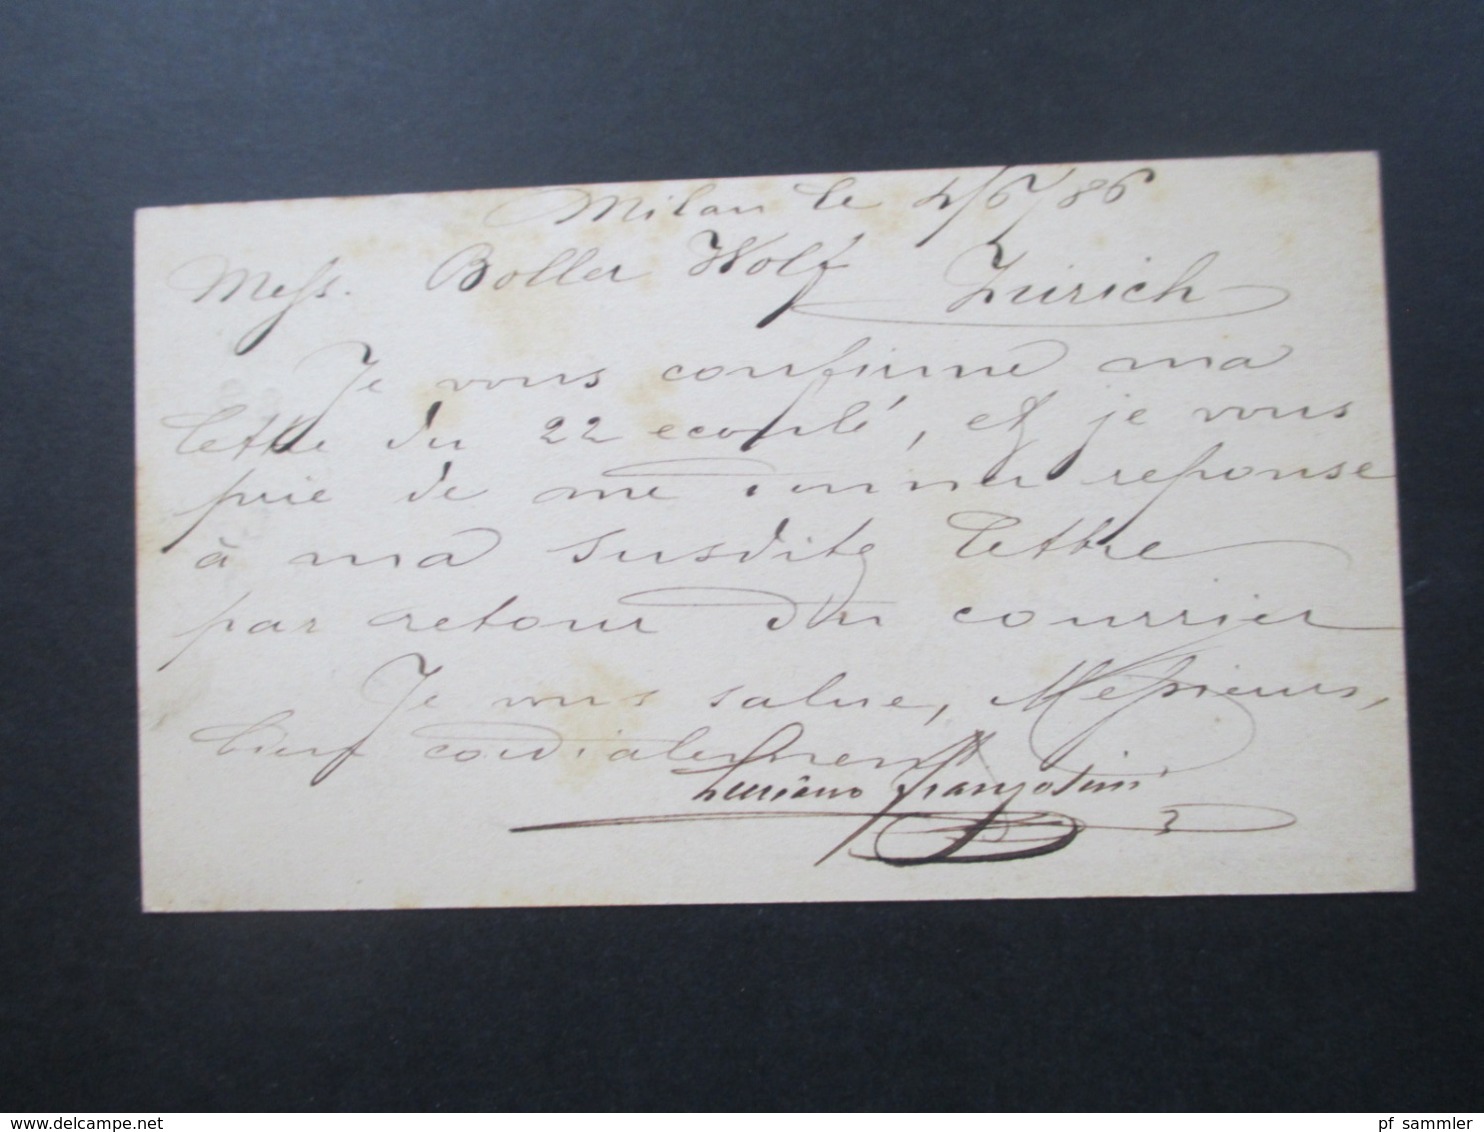 Milan le 4/6/86
Mess. Boller Wolf Zürich
Je vous confirme ma
lettre du 22 ecoulé, et je vous
prie de me donner reponse
à ma susdite lettre
par retour du courrier
Je vous salue, Messieurs,
bien cordialement
Luciano
www.delcampe.net
pf_sammler